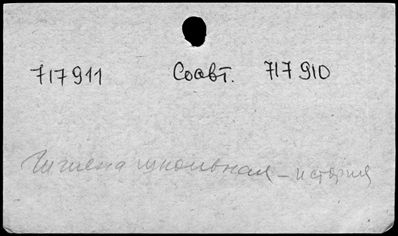 717911 Соавт. 717910
Гигиена школьная – история